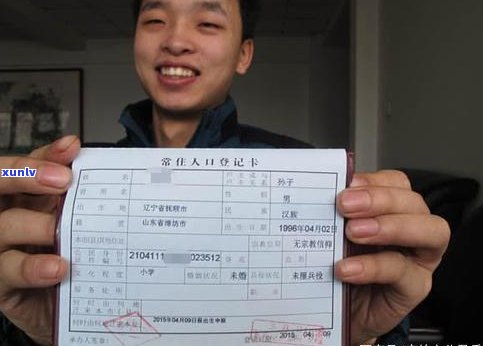 常住人口登记卡
姓名 户主或与户主关系 孙子
曾用名 性别 男
出生地 辽宁省抚顺市 民族 汉族
籍贯 山东省潍坊市 出生日期 1996年04月02
本市(县)其他住址 宗教信仰 无宗教信仰
公民身份证件编号 2104111 023512 身高 血型
文化程度 小学 婚姻状况 未婚 兵役状况 未服兵役
服务处所 职业
何时由何地迁来本市(县)
何时由何地迁来本址 2015年04月09日
承办人签章 2015 04 09
xunlv